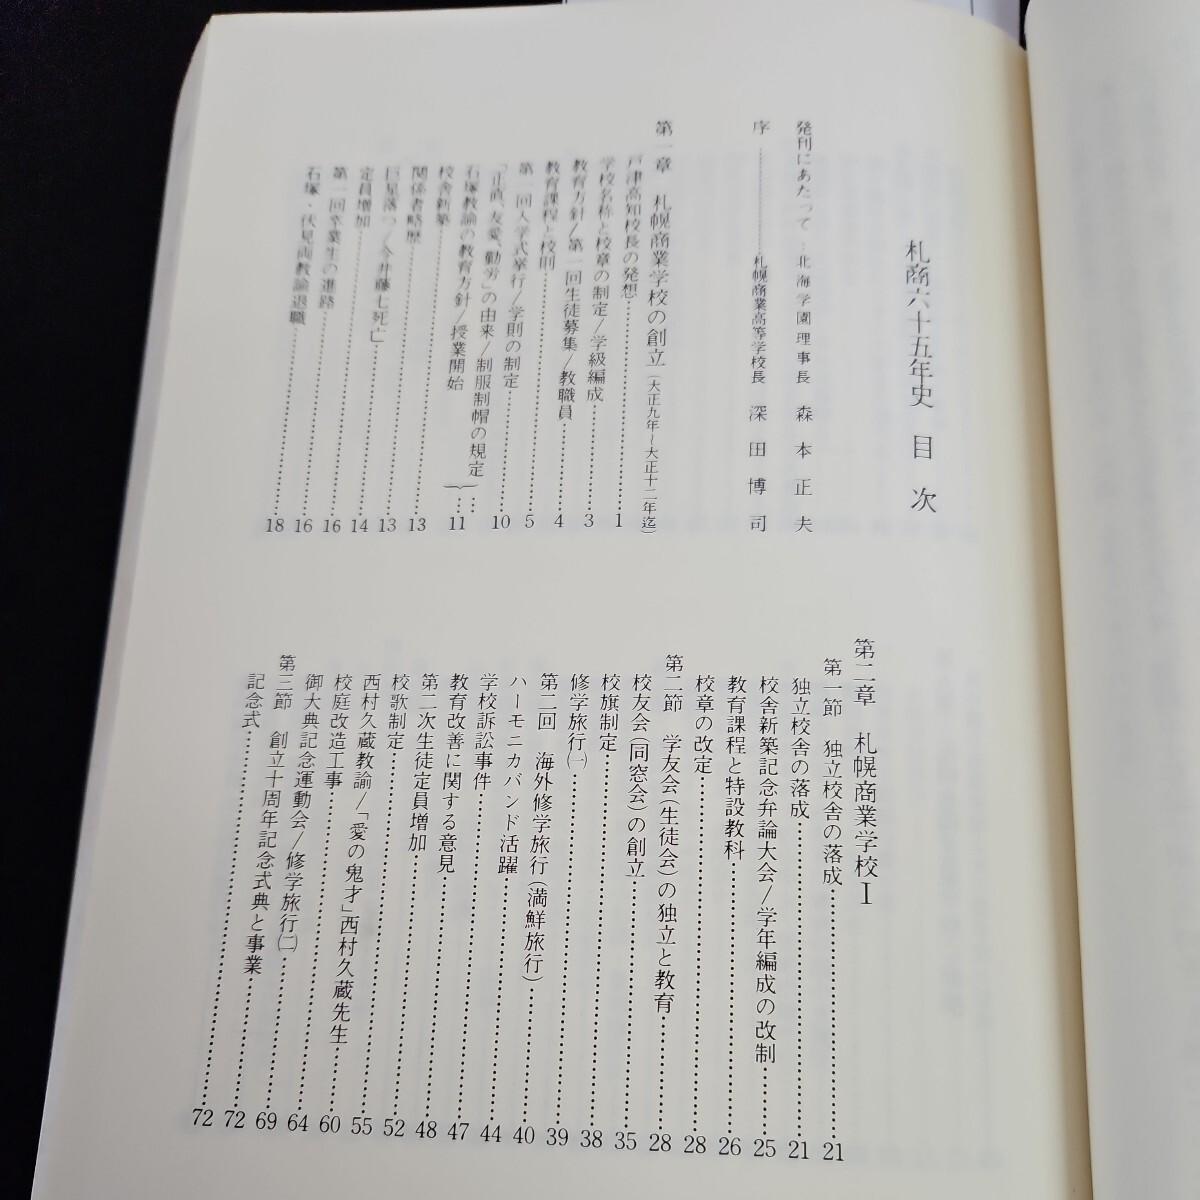 札商六十五年史　目次
発刊にあたって…北海学園理事長　森本正夫
序…………札幌商業高等学校長　深田博司
第一章　札幌商業学校の創立（大正九年～大正十二年迄）
戸津高知校長の発想…………1
学校名称と校章の制定／学級編成…………3
教育方針／第一回生徒募集／教職員…………4
教育課程と校則…………5
第一回入学式挙行／学則の制定…………10
「正直、友愛、勤労」の由来／制服制帽の規定
石塚教諭の教育方針／授業開始…11
校舎新築…………13
関係者略歴…………13
巨星落つ／今井藤七死亡…………14
定員増加…………16
第一回卒業生の進路…………16
石塚・伏見両教諭退職…………18
第二章　札幌商業学校Ⅰ
第一節　独立校舎の落成…………21
独立校舎の落成…………21
校舎新築記念弁論大会／学年編成の改制…………25
教育課程と特設教科…………26
校章の改定…………28
第二節　学友会（生徒会）の独立と教育…………28
校友会（同窓会）の創立…………35
校旗制定…………38
修学旅行㈠…………39
第二回　海外修学旅行（満鮮旅行）…………40
ハーモニカバンド活躍…………44
学校訴訟事件…………47
教育改善に関する意見…………48
第二次生徒定員増加…………52
校歌制定…………55
西村久蔵教諭／「愛の鬼才」西村久蔵先生…………60
校庭改造工事…………64
御大典記念運動会／修学旅行㈡…………69
第三節　創立十周年記念式典と事業…………72
記念式…………72